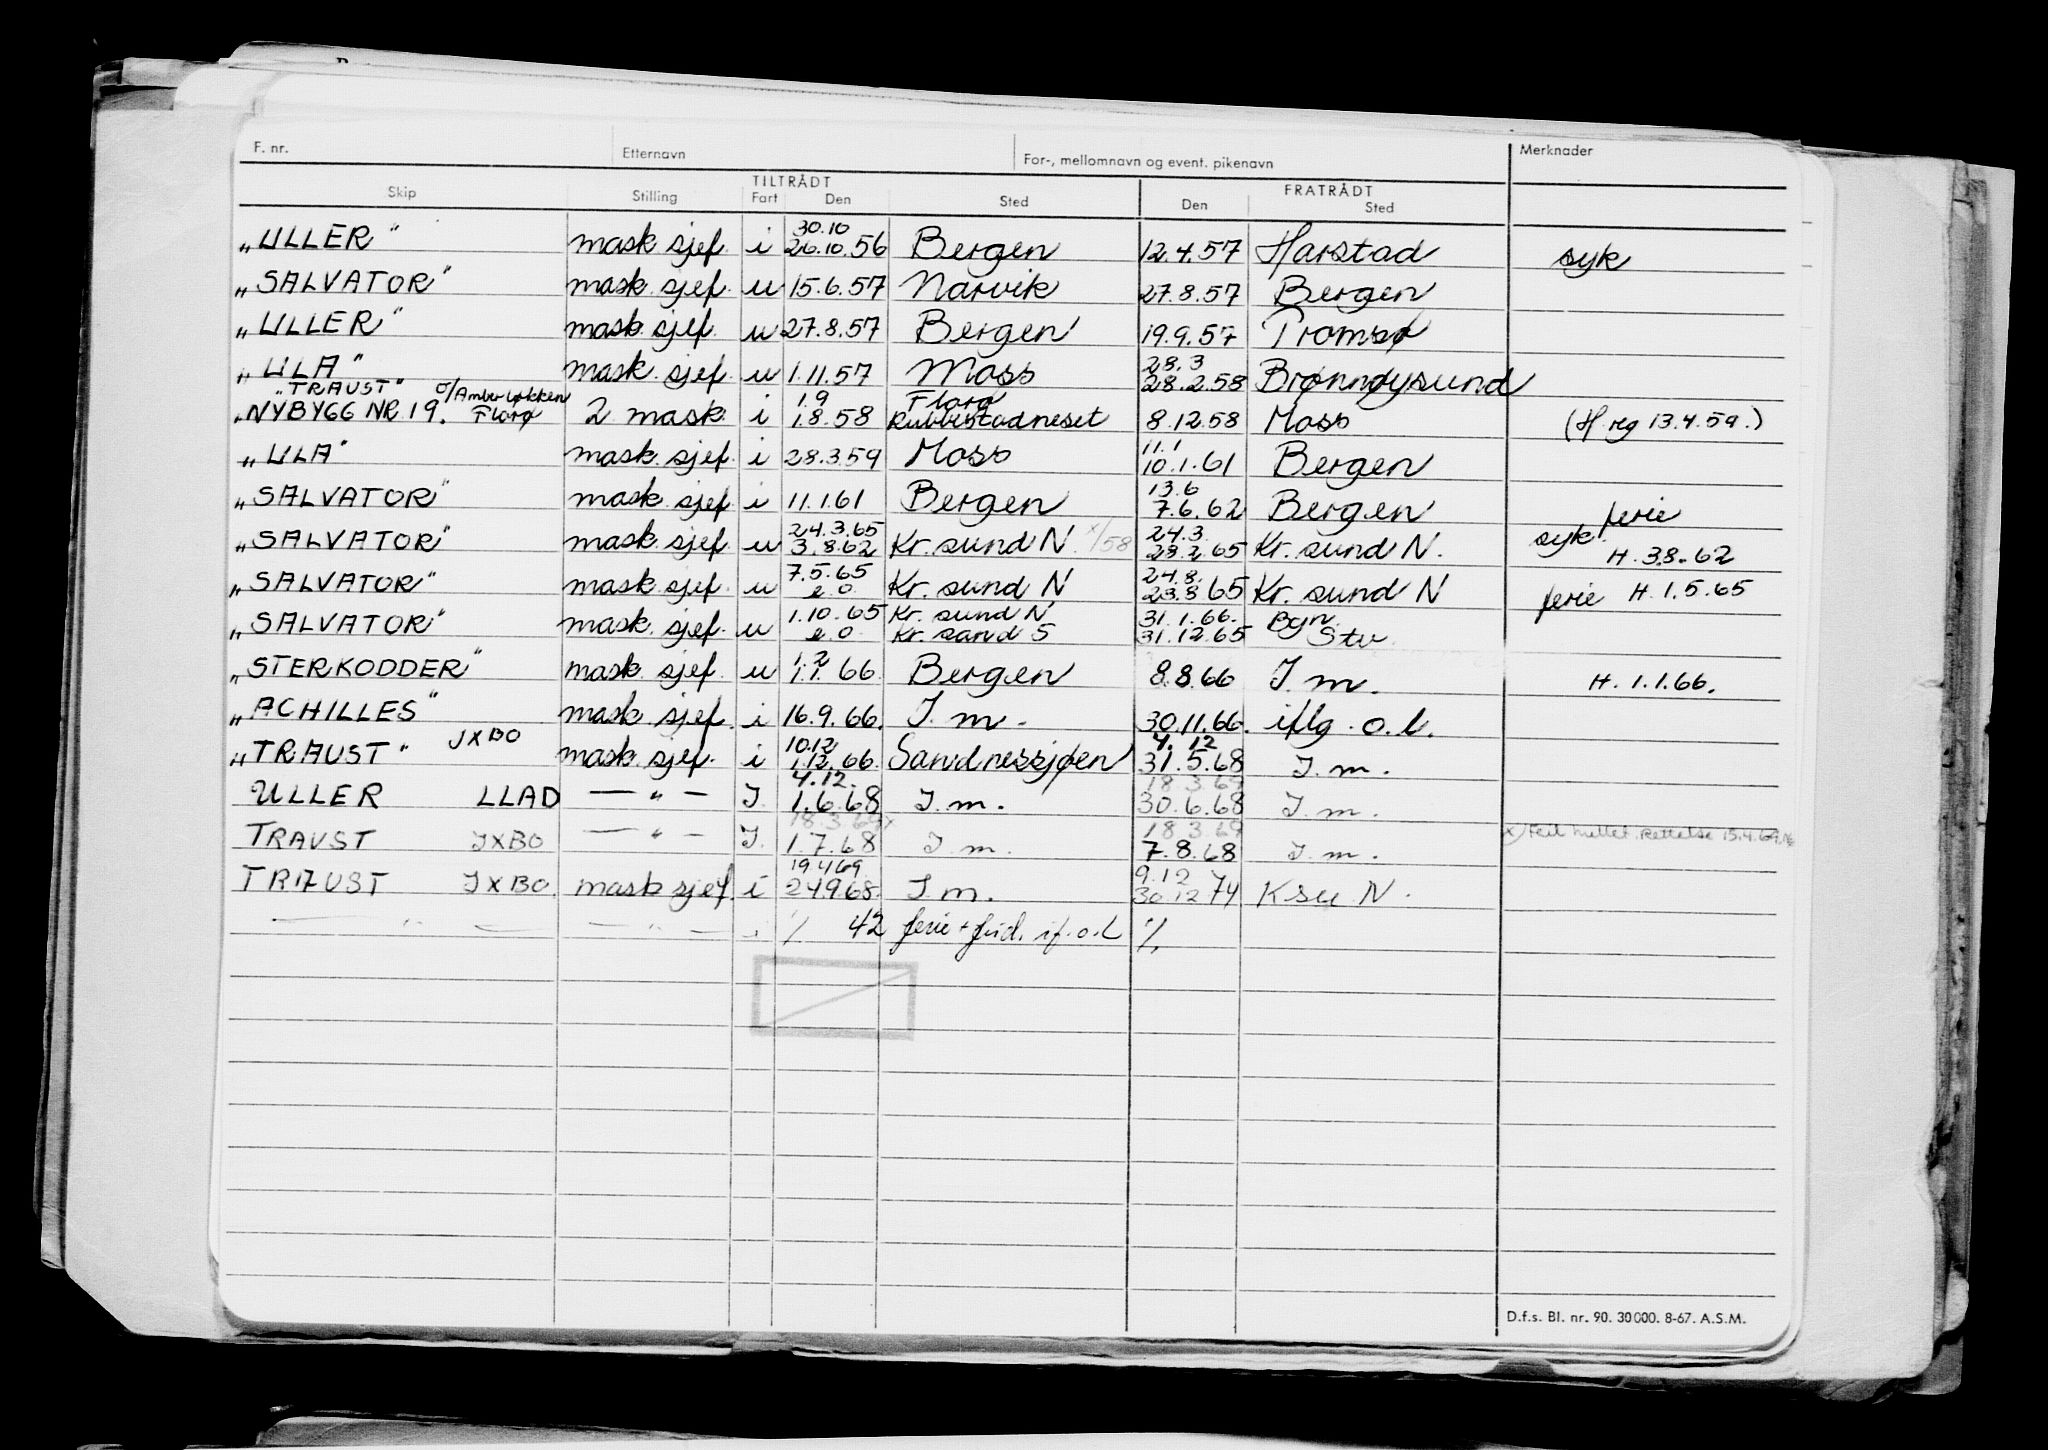 F. nr. Etternavn For-, mellomnavn og event. pikenavn Merknader
TILTRÅDT FRATRÅDT
Skip Stilling Fart Den Sted Den Sted
30.10
„ULLER" mask. sjef. i 26.10.56 Bergen 12.4.57 Harstad syk
„SALVATOR" mask. sjef. u 15.6.57 Narvik 27.8.57 Bergen
„ULLER" mask. sjef. u 27.8.57 Bergen 19.9.57 Tromsø
28.3
„ULA" mask. sjef. u 1.11.57 Moss 28.2.58 Brønnøysund
„TRAUST" 1.9 Florø
„NYBYGG NR. 19. Florø 2 mask. i 1.8.58 Rubbestadneset 8.12.58 Moss (H. reg 13.4.59.)
11.1
„ULA" mask. sjef. i 28.3.59 Moss 10.1.61 Bergen
13.6
„SALVATOR" mask. sjef. i 11.1.61 Bergen 7.6.62 Bergen ferie
24.3.65 24.3.
„SALVATOR" mask. sjef. u 3.8.62 Kr. sund N. x/58 28.2.65 Kr. sund N. syk. H. 3.8.62
7.5.65 24.8.
„SALVATOR" mask. sjef. u e.o. Kr. sund N 23.8 65 Kr. sund N ferie H. 1.5.65
1.10.65 Kr. sund N 31.1.66. Bgn.
„SALVATOR" mask. sjef. u e.o. Kr. sand S 31.12.65 Stv.
1.2
„STERKODDER" mask. sjef. u 1.1.66 Bergen 8.8.66 I. m. H. 1.1.66.
„ACHILLES" mask. sjef. i 16.9.66. I. m. 30.11.66. iflg. o.l.
10.12 4.12
„TRAUST" JXBO mask. sjef. i 1.12.66. Sandnessjøen 31.5.68 I. m.
4.12. 18.3.69
ULLER LLAD — „ — I. 1.6.68 I. m. 30.6.68 I. m.
18.3.69 18.3.69
TRAUST JXBO — „ — I. 1.7.68 I. m. 7.8.68 I. m. x) Feil mellet. Rettelse 15.4.69.
19.4.69 9.12
TRAUST JXBO. mask sjef. i 24.9.68. I m. 30.12 74 Ksu N.
— „ — — „ — % 42 ferie + frid. if. o.l %
D.f.s. Bl. nr. 90. 30000. 8-67. A.S.M.